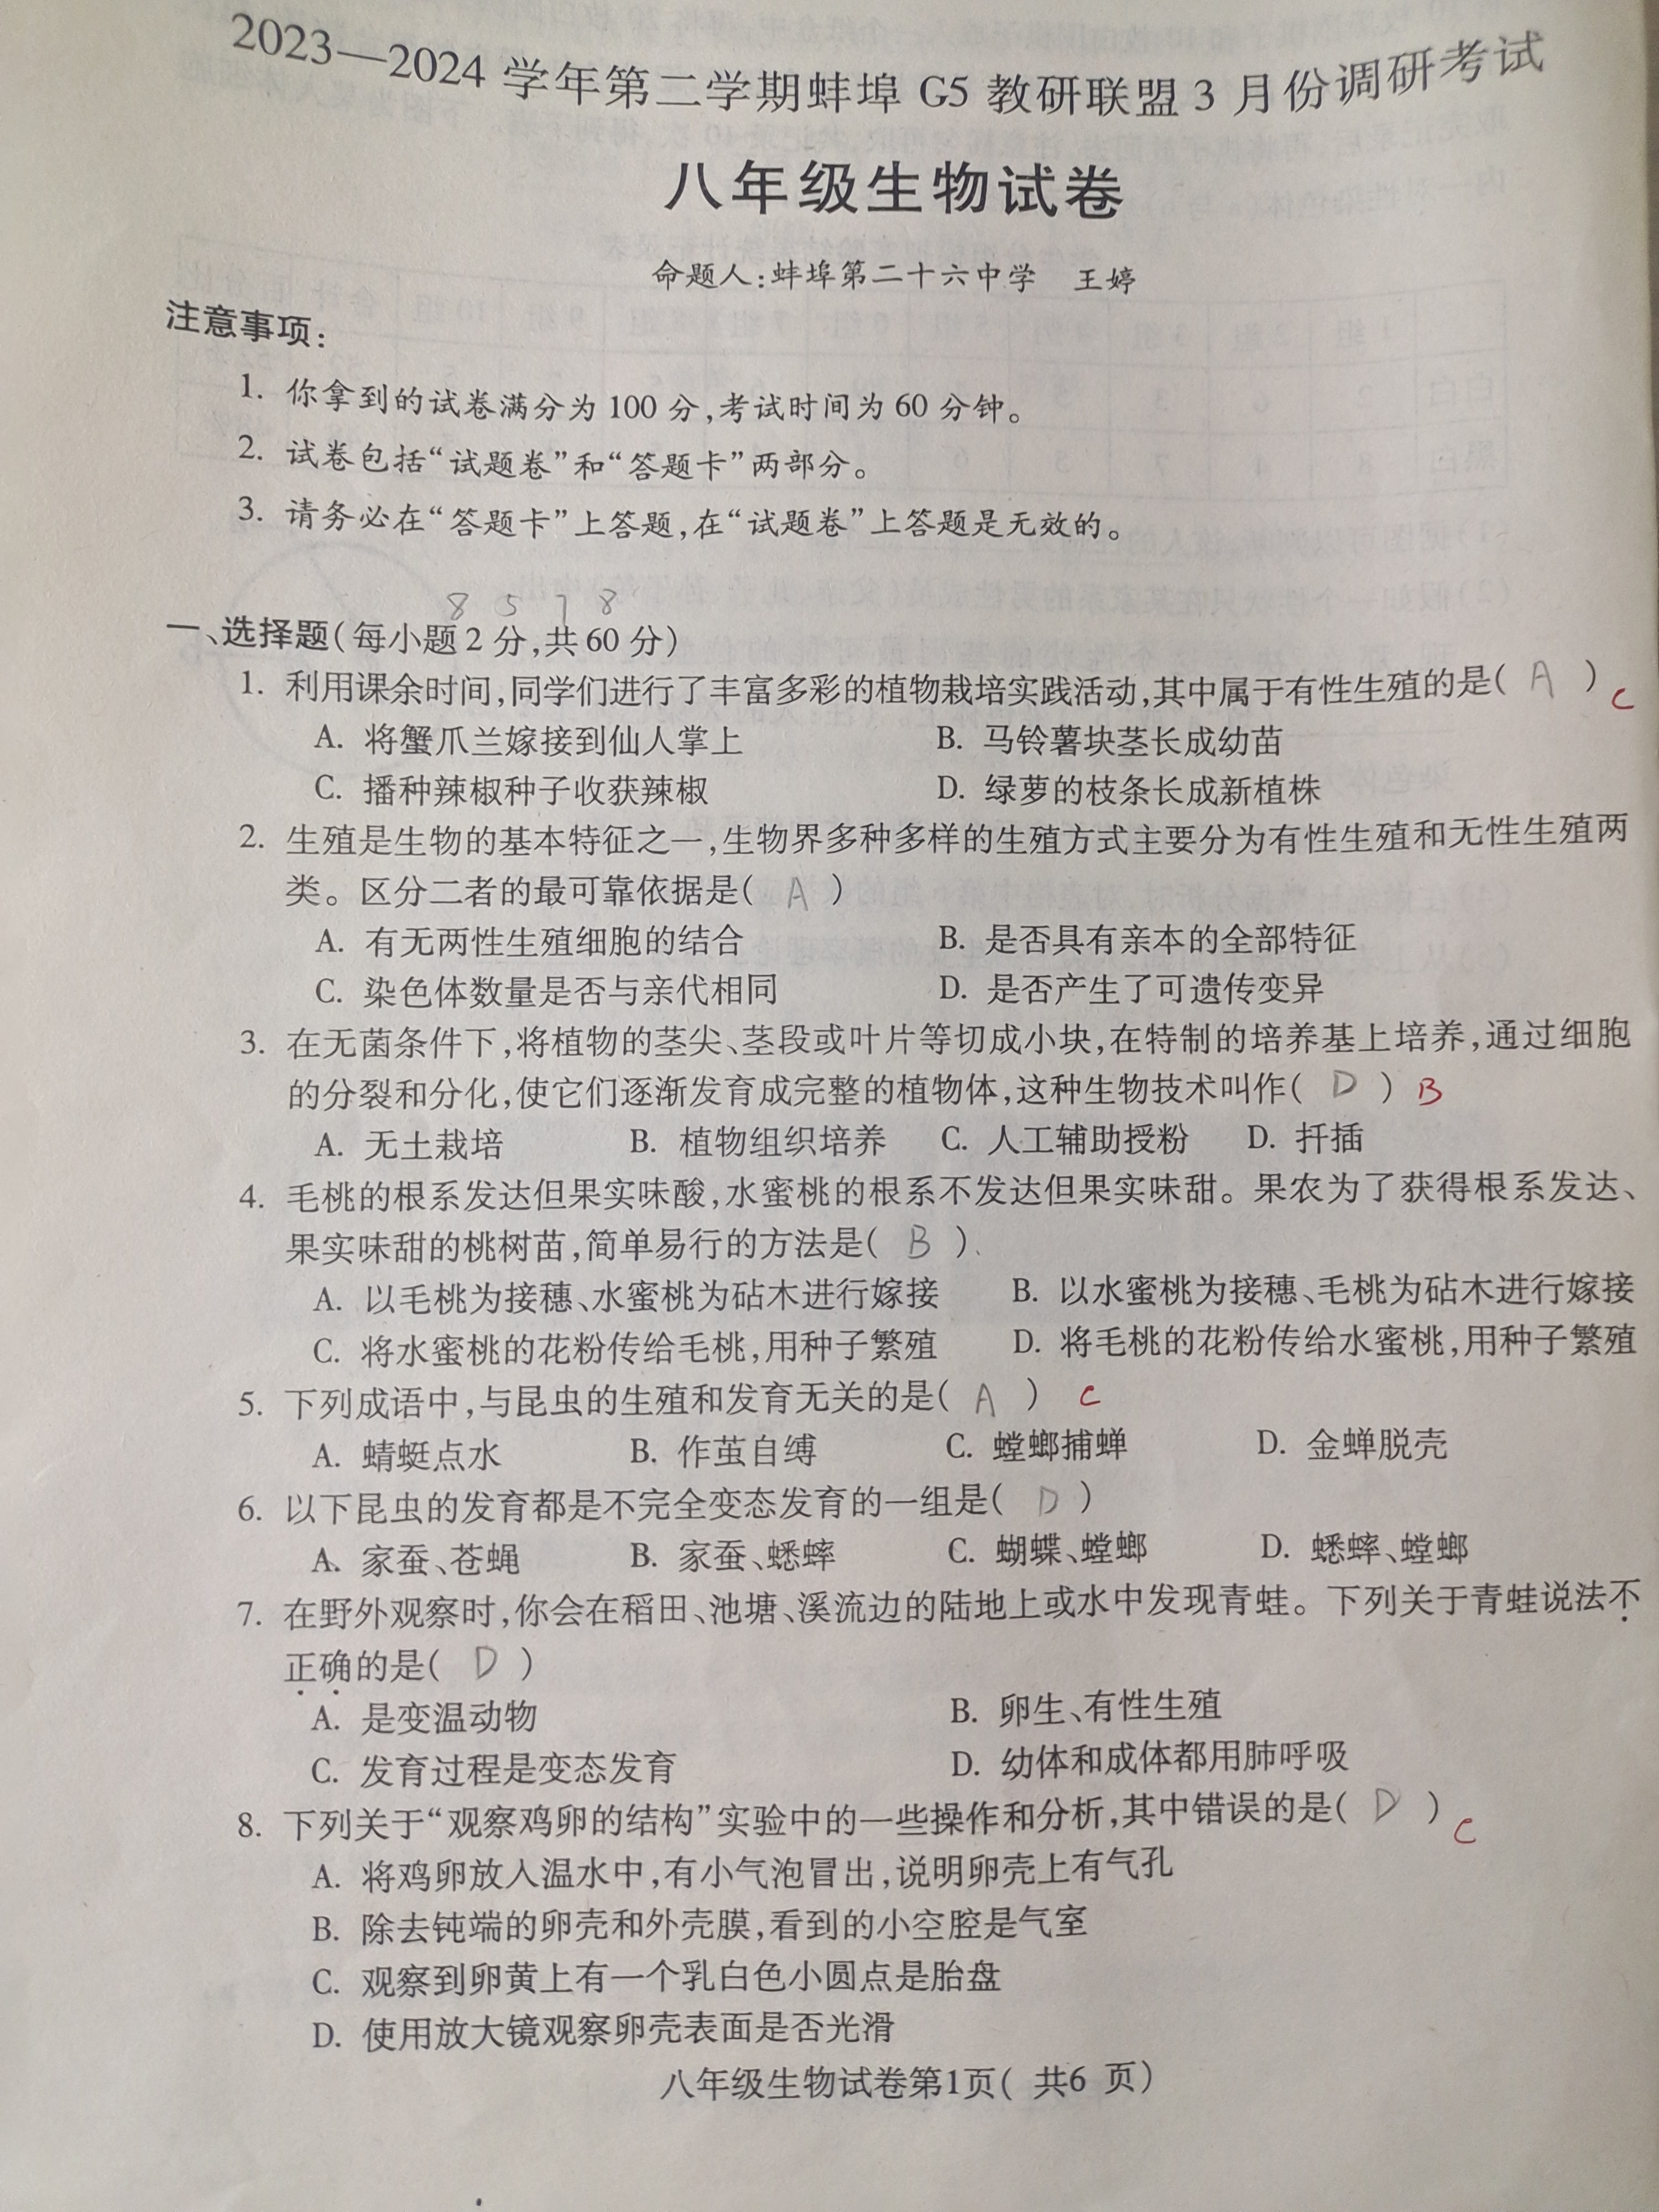 2023—2024 学年第二学期蚌埠 G5 教研联盟 3 月份调研考试
八年级生物试卷
命题人:蚌埠第二十六中学 王婷
注意事项:
1. 你拿到的试卷满分为 100 分,考试时间为 60 分钟。
2. 试卷包括“试题卷”和“答题卡”两部分。
3. 请务必在“答题卡”上答题,在“试题卷”上答题是无效的。
8 5 7 8
一、选择题(每小题 2 分,共 60 分)
1. 利用课余时间,同学们进行了丰富多彩的植物栽培实践活动,其中属于有性生殖的是( A ) C
A. 将蟹爪兰嫁接到仙人掌上 B. 马铃薯块茎长成幼苗
C. 播种辣椒种子收获辣椒 D. 绿萝的枝条长成新植株
2. 生殖是生物的基本特征之一,生物界多种多样的生殖方式主要分为有性生殖和无性生殖两
类。区分二者的最可靠依据是( A )
A. 有无两性生殖细胞的结合 B. 是否具有亲本的全部特征
C. 染色体数量是否与亲代相同 D. 是否产生了可遗传变异
3. 在无菌条件下,将植物的茎尖、茎段或叶片等切成小块,在特制的培养基上培养,通过细胞
的分裂和分化,使它们逐渐发育成完整的植物体,这种生物技术叫作( D ) B
A. 无土栽培 B. 植物组织培养 C. 人工辅助授粉 D. 扦插
4. 毛桃的根系发达但果实味酸,水蜜桃的根系不发达但果实味甜。果农为了获得根系发达、
果实味甜的桃树苗,简单易行的方法是( B )
A. 以毛桃为接穗、水蜜桃为砧木进行嫁接 B. 以水蜜桃为接穗、毛桃为砧木进行嫁接
C. 将水蜜桃的花粉传给毛桃,用种子繁殖 D. 将毛桃的花粉传给水蜜桃,用种子繁殖
5. 下列成语中,与昆虫的生殖和发育无关的是( A ) C
A. 蜻蜓点水 B. 作茧自缚 C. 螳螂捕蝉 D. 金蝉脱壳
6. 以下昆虫的发育都是不完全变态发育的一组是( D )
A. 家蚕、苍蝇 B. 家蚕、蟋蟀 C. 蝴蝶、螳螂 D. 蟋蟀、螳螂
7. 在野外观察时,你会在稻田、池塘、溪流边的陆地上或水中发现青蛙。下列关于青蛙说法不
正确的是( D )
A. 是变温动物 B. 卵生、有性生殖
C. 发育过程是变态发育 D. 幼体和成体都用肺呼吸
8. 下列关于“观察鸡卵的结构”实验中的一些操作和分析,其中错误的是( D ) C
A. 将鸡卵放入温水中,有小气泡冒出,说明卵壳上有气孔
B. 除去钝端的卵壳和外壳膜,看到的小空腔是气室
C. 观察到卵黄上有一个乳白色小圆点是胎盘
D. 使用放大镜观察卵壳表面是否光滑
八年级生物试卷第1页( 共6 页)